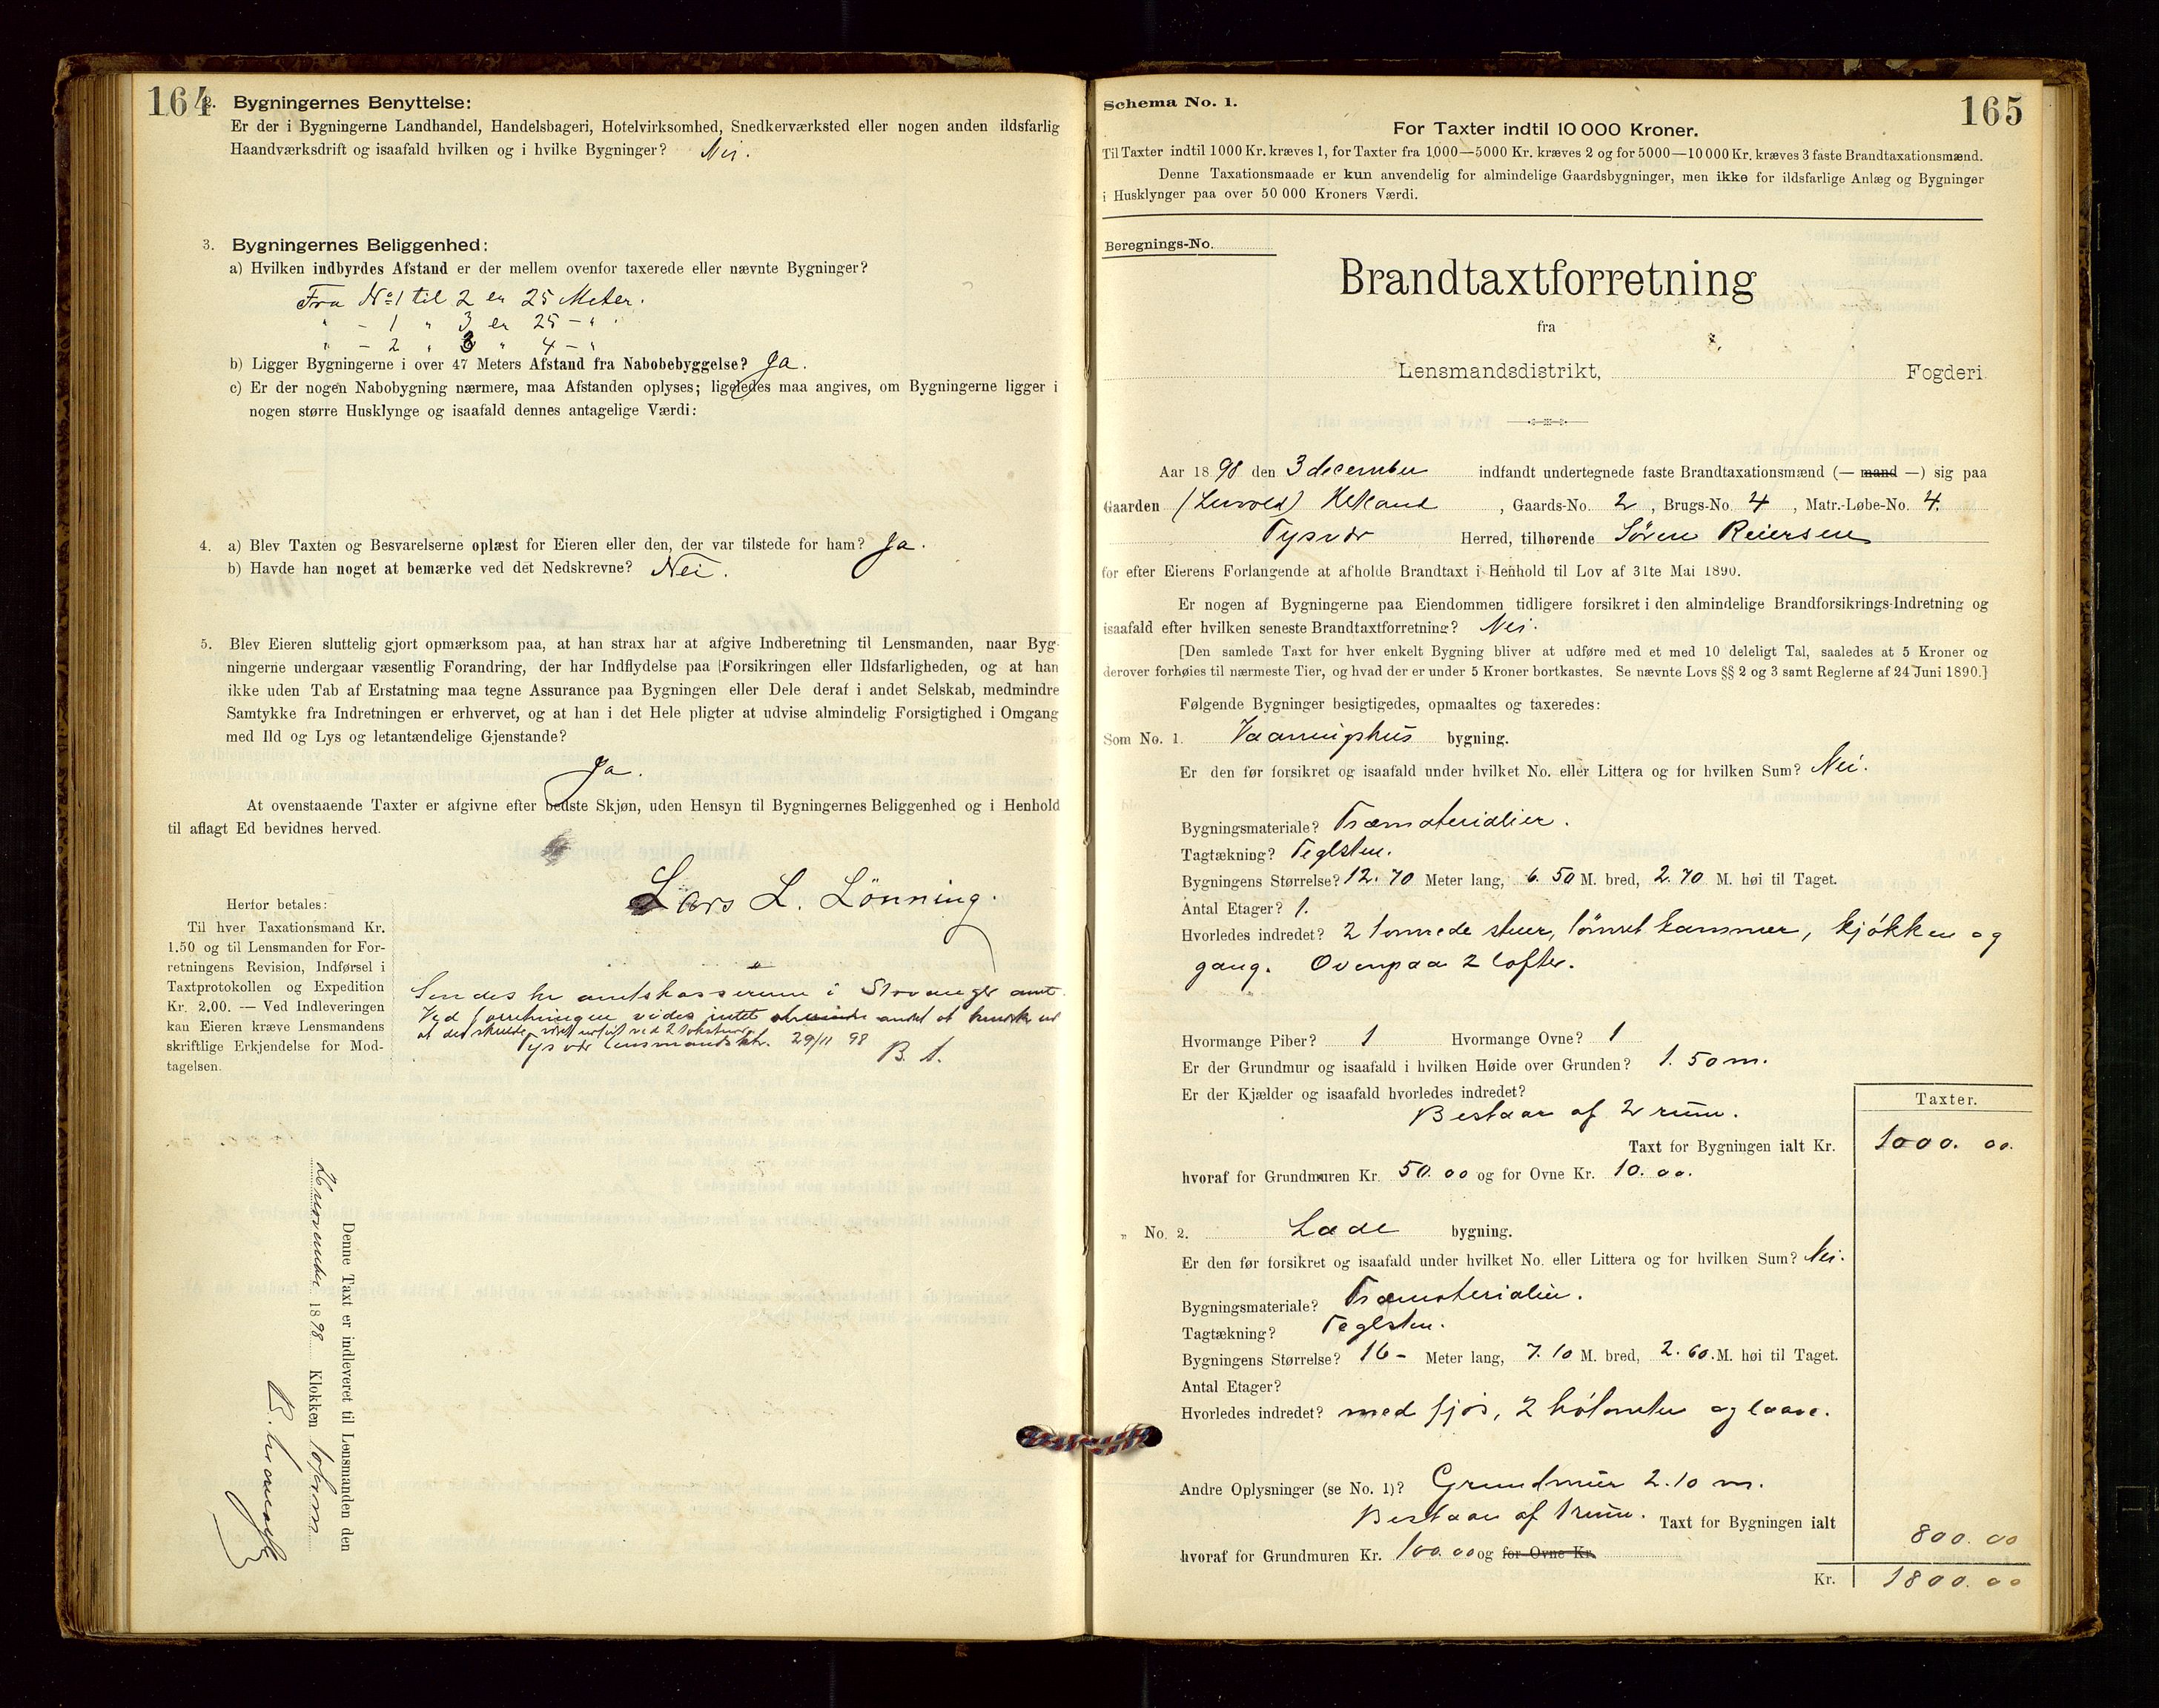 164
2. Bygningernes Benyttelse:
Er der i Bygningerne Landhandel, Handelsbageri, Hotelvirksomhed, Snedkerværksted eller nogen anden ildsfarlig
Haandværksdrift og isaafald hvilken og i hvilke Bygninger? Nei.
3. Bygningernes Beliggenhed:
a) Hvilken indbyrdes Afstand er der mellem ovenfor taxerede eller nævnte Bygninger?
Fra No 1 til 2 er 25 Meter.
" - 1 " 3 er 25 - " .
" - 2 " 3 " 4 - "
b) Ligger Bygningerne i over 47 Meters Afstand fra Nabobebyggelse? Ja.
c) Er der nogen Nabobygning nærmere, maa Afstanden oplyses; ligeledes maa angives, om Bygningerne ligger i
nogen større Husklynge og isaafald dennes antagelige Værdi:
4. a) Blev Taxten og Besvarelserne oplæst for Eieren eller den, der var tilstede for ham? Ja.
b) Havde han noget at bemærke ved det Nedskrevne? Nei.
5. Blev Eieren sluttelig gjort opmærksom paa, at han strax har at afgive Indberetning til Lensmanden, naar Byg-
ningerne undergaar væsentlig Forandring, der har Indflydelse paa Forsikringen eller Ildsfarligheden, og at han
ikke uden Tab af Erstatning maa tegne Assurance paa Bygningen eller Dele deraf i andet Selskab, medmindre
Samtykke fra Indretningen er erhvervet, og at han i det Hele pligter at udvise almindelig Forsigtighed i Omgang
med Ild og Lys og letantændelige Gjenstande?
Ja.
At ovenstaaende Taxter er afgivne efter bedste Skjøn, uden Hensyn til Bygningernes Beliggenhed og i Henhold
til aflagt Ed bevidnes herved.
Lars L. Lönning.
Herfor betales:
Til hver Taxationsmand Kr.
1.50 og til Lensmanden for For-
retningens Revision, Indførsel i
Taxtprotokollen og Expedition
Kr. 2.00. — Ved Indleveringen
kan Eieren kræve Lensmandens
skriftlige Erkjendelse for Mod-
tagelsen.
Sendes hr amtskassereren i Stavanger amt.
Ved forretningen vides intet andet at
at den skulde ved 2
Tysvær lensmandsktr. 29/11 98
B. A.
Denne Taxt er indleveret til Lensmanden den
november 1898 Klokken
165
Schema No. 1.
For Taxter indtil 10 000 Kroner.
Til Taxter indtil 1000 Kr. kræves 1, for Taxter fra 1000—5000 Kr. kræves 2 og for 5000—10 000 Kr. kræves 3 faste Brandtaxationsmænd.
Denne Taxationsmaade er kun anvendelig for almindelige Gaardsbygninger, men ikke for ildsfarlige Anlæg og Bygninger
i Husklynger paa over 50 000 Kroners Værdi.
Beregnings-No.
Brandtaxtforretning
fra
Lensmandsdistrikt, Fogderi
Aar 1898 den 3 december indfandt undertegnede faste Brandtaxationsmænd (— mand —) sig paa
Gaarden Helland, Gaards-No. 2, Brugs-No. 4, Matr.-Løbe-No. 4.
Tysvær Herred, tilhørende Søren Reiersen
for efter Eierens Forlangende at afholde Brandtaxt i Henhold til Lov af 31te Mai 1890.
Er nogen af Bygningerne paa Eiendommen tidligere forsikret i den almindelige Brandforsikrings-Indretning og
isaafald efter hvilken seneste Brandtaxtforretning? Nei.
[Den samlede Taxt for hver enkelt Bygning bliver at udføre med et med 10 deleligt Tal, saaledes at 5 Kroner og
derover forhøies til nærmeste Tier, og hvad der er under 5 Kroner bortkastes. Se nævnte Lovs §§ 2 og 3 samt Reglerne af 24 Juni 1890.]
Følgende Bygninger besigtigedes, opmaaltes og taxeredes:
Som No. 1. Vaaningshus bygning.
Er den før forsikret og isaafald under hvilket No. eller Littera og for hvilken Sum? Nei.
Bygningsmateriale? Træmaterialier.
Tagtækning? Teglsten.
Bygningens Størrelse? 12.70 Meter lang, 6.50 M. bred, 2.70 M. høi til Taget.
Antal Etager? 1.
Hvorledes indredet? 2 tømrede stuer, tömret kammer, kjökken og
gang. Ovenpaa 2 lofter.
Hvormange Piber? 1 Hvormange Ovne? 1
Er der Grundmur og isaafald i hvilken Høide over Grunden? 1.50 m.
Er der Kjælder og isaafald hvorledes indredet?
Bestaar af 2 rum.
Taxter.
Taxt for Bygningen ialt Kr. 1000.00.
hvoraf for Grundmuren Kr. 50.00 og for Ovne Kr. 10.00.
" No. 2. Lade bygning.
Er den før forsikret og isaafald under hvilket No. eller Littera og for hvilken Sum? Nei.
Bygningsmateriale? Træmaterialier.
Tagtækning? Teglsten.
Bygningens Størrelse? 16 - Meter lang, 7.10 M. bred, 2.60. M. høi til Taget.
Antal Etager?
Hvorledes indredet? med fjös, 2 hölauter og laave.
Andre Oplysninger (se No. 1)? Grundmur 2.10 m.
Bestaar af 1 rum. Taxt for Bygningen ialt 800.00
hvoraf for Grundmuren Kr. 100.00 og for Ovne Kr.
Kr. 1800.00